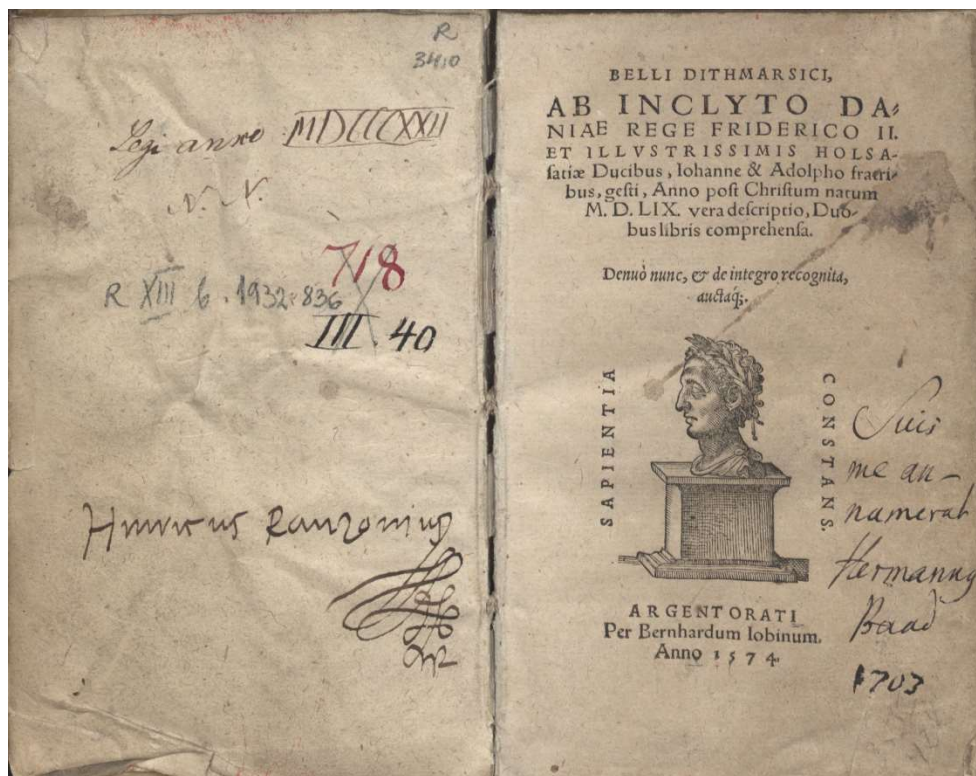 R
3410
Legi anno MDCCCXXII
N. N.
718
R XIII b. 1932. 836
III. 40
Hinricus Ranzonius
BELLI DITHMARSICI,
AB INCLYTO DA-
NIAE REGE FRIDERICO II.
ET ILLVSTRISSIMIS HOLSA-
satiæ Ducibus, Iohanne & Adolpho fratri-
bus, gesti, Anno post Christum natum
M. D. LIX. vera descriptio, Duo-
bus libris comprehensa.
Denuò nunc, & de integro recognita,
auctaq́;.
SAPIENTIA
CONSTANS.
ARGENTORATI
Per Bernhardum Iobinum.
Anno 1574.
Suis
me an-
numerat
Hermannus
Baad
1703